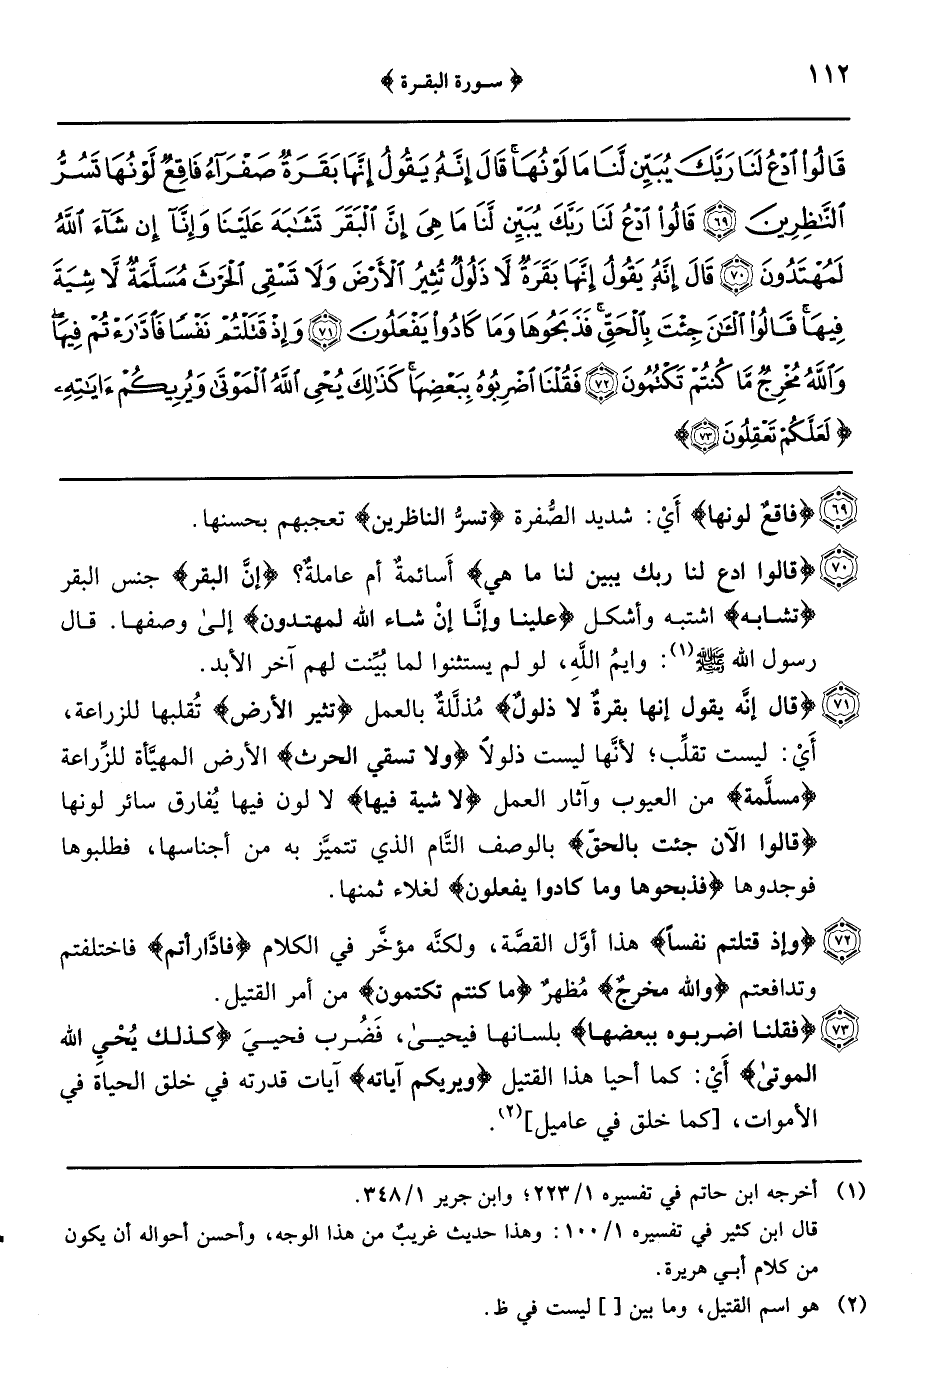 ١١٢
﴿ سورة البقرة ﴾
قَالُوا۟ ٱدْعُ لَنَا رَبَّكَ يُبَيِّن لَّنَا مَا لَوْنُهَا ۚ قَالَ إِنَّهُۥ يَقُولُ إِنَّهَا بَقَرَةٌ صَفْرَآءُ فَاقِعٌ لَّوْنُهَا تَسُرُّ
ٱلنَّـٰظِرِينَ ﴿٦٩﴾ قَالُوا۟ ٱدْعُ لَنَا رَبَّكَ يُبَيِّن لَّنَا مَا هِىَ إِنَّ ٱلْبَقَرَ تَشَـٰبَهَ عَلَيْنَا وَإِنَّآ إِن شَآءَ ٱللَّهُ
لَمُهْتَدُونَ ﴿٧٠﴾ قَالَ إِنَّهُۥ يَقُولُ إِنَّهَا بَقَرَةٌ لَّا ذَلُولٌ تُثِيرُ ٱلْأَرْضَ وَلَا تَسْقِى ٱلْحَرْثَ مُسَلَّمَةٌ لَّا شِيَةَ
فِيهَا ۚ قَالُوا۟ ٱلْـَٔـٰنَ جِئْتَ بِٱلْحَقِّ ۚ فَذَبَحُوهَا وَمَا كَادُوا۟ يَفْعَلُونَ ﴿٧١﴾ وَإِذْ قَتَلْتُمْ نَفْسًا فَٱدَّٰرَْٰٔتُمْ فِيهَا ۖ
وَٱللَّهُ مُخْرِجٌ مَّا كُنتُمْ تَكْتُمُونَ ﴿٧٢﴾ فَقُلْنَا ٱضْرِبُوهُ بِبَعْضِهَا ۚ كَذَٰلِكَ يُحْىِ ٱللَّهُ ٱلْمَوْتَىٰ وَيُرِيكُمْ ءَايَـٰتِهِۦ
﴿ لَعَلَّكُمْ تَعْقِلُونَ ﴿٧٣﴾ ﴾
﴿٦٩﴾ ﴿فاقعٌ لونها﴾ أَيْ: شديد الصُّفرة ﴿تسرُّ الناظرين﴾ تعجبهم بحسنها.
﴿٧٠﴾ ﴿قالوا ادع لنا ربك يبين لنا ما هي﴾ أَسائمةٌ أم عاملةٌ؟ ﴿إنَّ البقر﴾ جنس البقر
﴿تشابه﴾ اشتبه وأشكل ﴿علينا وإنَّا إنْ شاء الله لمهتدون﴾ إلىٰ وصفها. قال
رسول الله ﷺ(١): وايمُ اللَّهِ، لو لم يستثنوا لما بُيِّنت لهم آخر الأبد.
﴿٧١﴾ ﴿قال إنَّه يقول إنها بقرةٌ لا ذلولٌ﴾ مُذلَّلةٌ بالعمل ﴿تثير الأرض﴾ تُقلبها للزراعة،
أَيْ: ليست تقلِّب؛ لأنَّها ليست ذلولاً ﴿ولا تسقي الحرث﴾ الأرض المهيَّأة للزِّراعة
﴿مسلَّمة﴾ من العيوب وآثار العمل ﴿لا شية فيها﴾ لا لون فيها يُفارق سائر لونها
﴿قالوا الآن جئت بالحقّ﴾ بالوصف التَّام الذي تتميَّز به من أجناسها، فطلبوها
فوجدوها ﴿فذبحوها وما كادوا يفعلون﴾ لغلاء ثمنها.
﴿٧٢﴾ ﴿وإذ قتلتم نفساً﴾ هذا أوَّل القصَّة، ولكنَّه مؤخَّر في الكلام ﴿فادَّارأتم﴾ فاختلفتم
وتدافعتم ﴿والله مخرجٌ﴾ مُظهرٌ ﴿ما كنتم تكتمون﴾ من أمر القتيل.
﴿٧٣﴾ ﴿فقلنا اضربوه ببعضها﴾ بلسانها فيحيىٰ، فَضُرب فحييَ ﴿كذلك يُحْيِ الله
الموتىٰ﴾ أَيْ: كما أحيا هذا القتيل ﴿ويريكم آياته﴾ آيات قدرته في خلق الحياة في
الأموات، [كما خلق في عاميل](٢).
(١) أخرجه ابن حاتم في تفسيره ٢٢٣/١؛ وابن جرير ٣٤٨/١.
قال ابن كثير في تفسيره ١٠٠/١: وهذا حديث غريبٌ من هذا الوجه، وأحسن أحواله أن يكون
من كلام أبي هريرة.
(٢) هو اسم القتيل، وما بين [ ] ليست في ظ.